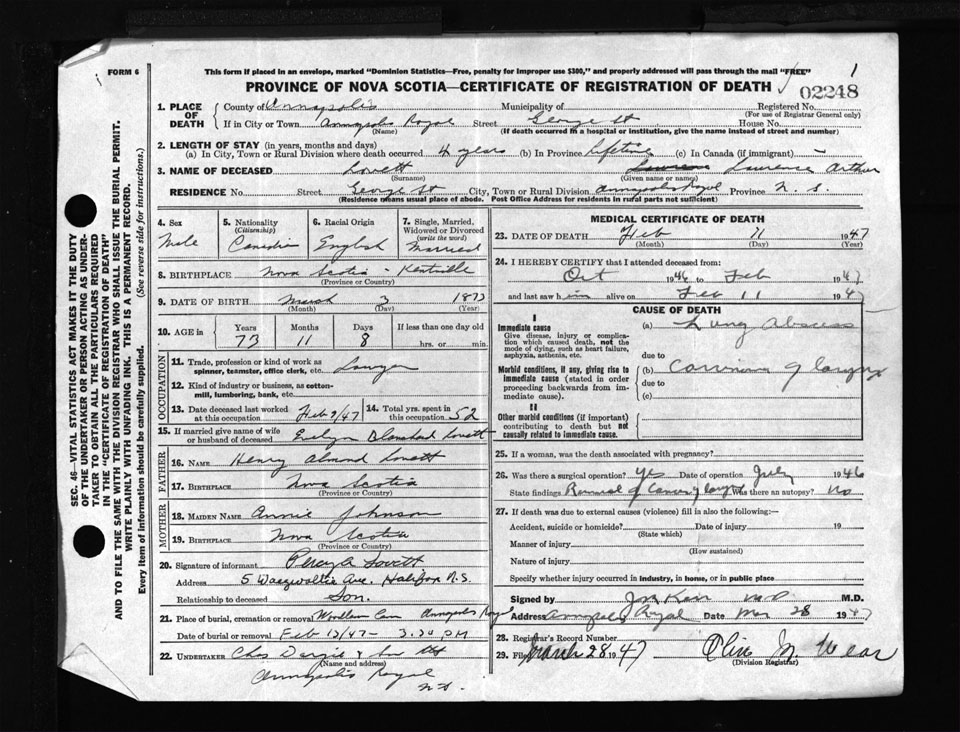 FORM 6
This form if placed in an envelope, marked "Dominion Statistics—Free, penalty for improper use $300," and properly addressed will pass through the mail "FREE"
1
PROVINCE OF NOVA SCOTIA—CERTIFICATE OF REGISTRATION OF DEATH
02248
SEC. 46—VITAL STATISTICS ACT MAKES IT THE DUTY
OF THE UNDERTAKER OR PERSON ACTING AS UNDER-
TAKER TO OBTAIN ALL THE PARTICULARS REQUIRED
IN THE "CERTIFICATE OF REGISTRATION OF DEATH"
AND TO FILE THE SAME WITH THE DIVISION REGISTRAR WHO SHALL ISSUE THE BURIAL PERMIT.
WRITE PLAINLY WITH UNFADING INK. THIS IS A PERMANENT RECORD.
Every item of information should be carefully supplied. (See reverse side for instructions.)
1. PLACE OF DEATH
County of Annapolis Municipality of Registered No.
(For use of Registrar General only)
If in City or Town Annapolis Royal Street George St House No.
(Name) (If death occurred in a hospital or institution, give the name instead of street and number)
2. LENGTH OF STAY (in years, months and days)
(a) In City, Town or Rural Division where death occurred 4 years (b) In Province Lifetime (c) In Canada (if immigrant) –
3. NAME OF DECEASED Lovett Lawrence Arthur
(Surname) (Given name or names)
RESIDENCE No. Street George St City, Town or Rural Division Annapolis Royal Province N. S.
(Residence means usual place of abode. Post Office Address for residents in rural parts not sufficient)
4. Sex Male
5. Nationality (Citizenship) Canadian
6. Racial Origin English
7. Single, Married, Widowed or Divorced (write the word) Married
8. BIRTHPLACE Nova Scotia - Kentville
(Province or Country)
9. DATE OF BIRTH March 3 1873
(Month) (Day) (Year)
10. AGE in Years Months Days If less than one day old
73 11 8 hrs. or min.
OCCUPATION
11. Trade, profession or kind of work as spinner, teamster, office clerk, etc. Lawyer
12. Kind of industry or business, as cotton-mill, lumbering, bank, etc.
13. Date deceased last worked at this occupation Feb 9/47
14. Total yrs. spent in this occupation 52
15. If married give name of wife or husband of deceased Evelyn Blanchard Lovett
FATHER
16. NAME Henry Almond Lovett
17. BIRTHPLACE Nova Scotia
(Province or Country)
MOTHER
18. MAIDEN NAME Annie Johnson
19. BIRTHPLACE Nova Scotia
(Province or Country)
20. Signature of informant Lovett
Address 5 Ave. Halifax N.S.
Relationship to deceased Son.
21. Place of burial, cremation or removal Annapolis Royal
Date of burial or removal Feb 13/47 - 3.30 PM
22. UNDERTAKER Chas & Son
(Name and address)
Annapolis Royal
N.S.
MEDICAL CERTIFICATE OF DEATH
23. DATE OF DEATH Feb 11 1947
(Month) (Day) (Year)
24. I HEREBY CERTIFY that I attended deceased from:
Oct 1946 to Feb 1947
and last saw him alive on Feb 11 1947
CAUSE OF DEATH
I
Immediate cause
Give disease, injury or complication which caused death, not the mode of dying, such as heart failure, asphyxia, asthenia, etc.
(a) Lung Abscess
due to
Morbid conditions, if any, giving rise to immediate cause (stated in order proceeding backwards from immediate cause).
(b) Carcinoma of larynx
due to
(c)
II
Other morbid conditions (if important) contributing to death but not causally related to immediate cause.
25. If a woman, was the death associated with pregnancy?
26. Was there a surgical operation? Yes Date of operation July 1946
State findings Removal of Cancer of larynx Was there an autopsy? No
27. If death was due to external causes (violence) fill in also the following:—
Accident, suicide or homicide? Date of injury 19
(State which)
Manner of injury
(How sustained)
Nature of injury
Specify whether injury occurred in industry, in home, or in public place
Signed by Kerr MD M.D.
Address Annapolis Royal Date Mar 28 1947
28. Registrar's Record Number
29. Filed March 28 1947
(Division Registrar)